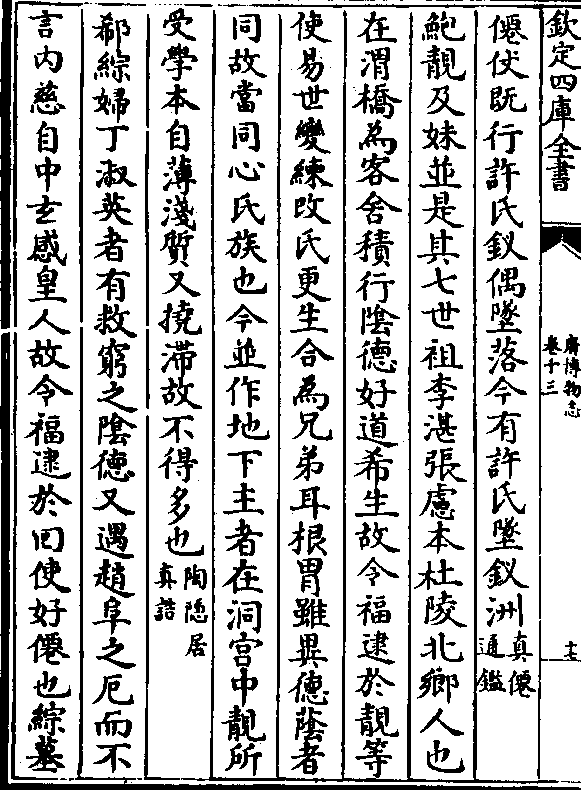 欽定四庫全書
廣博物志
卷十三
僊伏既行許氏釵偶墜落今有許氏墜釵洲真僊通鑑
鮑靚及妹並是其七世祖李湛張慮本杜陵北鄉人也
在渭橋為客舍積行陰德好道希生故今福逮於靚等
使易世變練改氏更生合為兄弟耳根胄雖異德蔭者
同故當同心氏族也今並作地下主者在洞宫中靚所
受學本自薄淺質又撓滯故不得多也陶隱居真誥
郗綜婦丁淑英者有救窮之陰德又遇趙阜之厄而不
言内慈自中玄感皇人故令福逮於回使好僊也綜墓